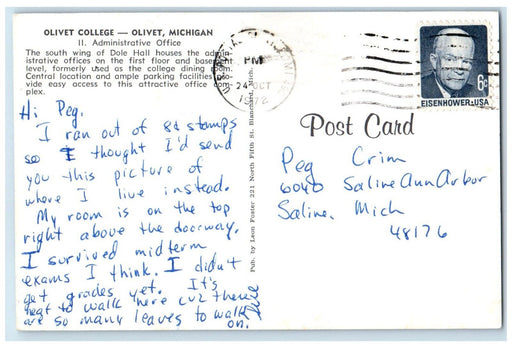 OLIVET COLLEGE — OLIVET, MICHIGAN
II. Administrative Office
The south wing of Dole Hall houses the admin-
istrative offices on the first floor and basement
level, formerly used as the college dining room.
Central location and ample parking facilities pro-
vide easy access to this attractive office com-
plex.
Hi Peg.
I ran out of 8¢ stamps
so I thought I'd send
you this picture of
where I live instead.
My room is on the top
right above the doorway.
I survived midterm
exams I think. I didn't
get grades yet. It's
neat to walk here cuz there
are so many leaves to walk
on.
Pub. by Leon Foster 221 North Fifth St.
PM
24 OCT
1972
6¢
EISENHOWER·USA
Post Card
Peg Crim
6040 Saline Ann Arbor
Saline, Mich
48176